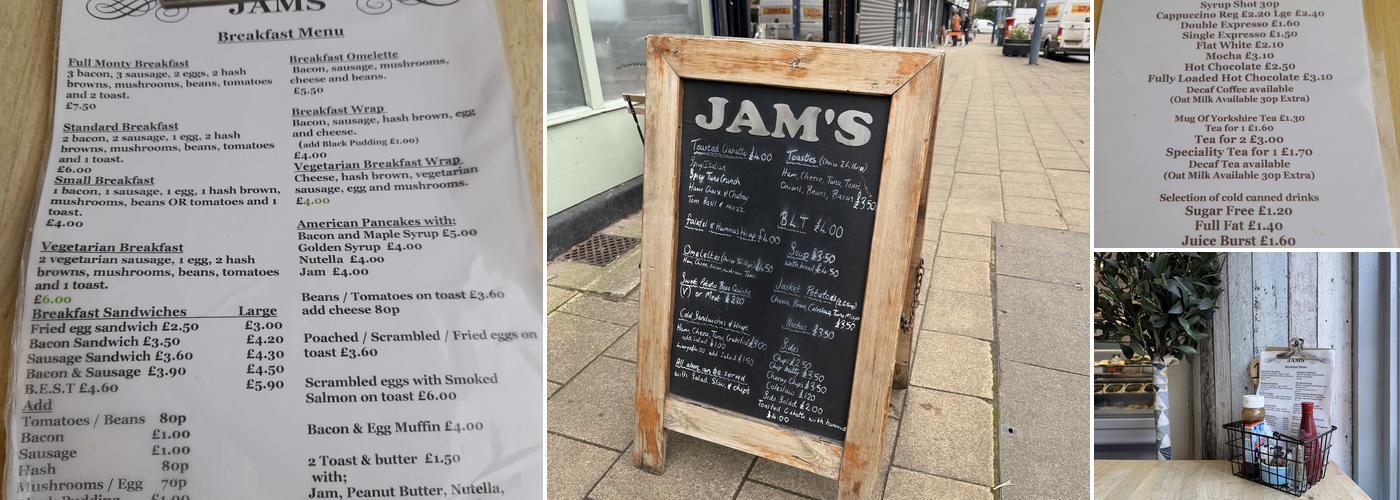 JAMS
Breakfast Menu
Full Monty Breakfast
3 bacon, 3 sausage, 2 eggs, 2 hash
browns, mushrooms, beans, tomatoes
and 2 toast.
£7.50
Standard Breakfast
2 bacon, 2 sausage, 1 egg, 2 hash
browns, mushrooms, beans, tomatoes
and 1 toast.
£6.00
Small Breakfast
1 bacon, 1 sausage, 1 egg, 1 hash brown,
mushrooms, beans OR tomatoes and 1
toast.
£4.00
Vegetarian Breakfast
2 vegetarian sausage, 1 egg, 2 hash
browns, mushrooms, beans, tomatoes
and 1 toast.
£6.00
Breakfast Sandwiches Large
Fried egg sandwich £2.50 £3.00
Bacon Sandwich £3.50 £4.20
Sausage Sandwich £3.60 £4.30
Bacon & Sausage £3.90 £4.50
B.E.S.T £4.60 £5.90
Add
Tomatoes / Beans 80p
Bacon £1.00
Sausage £1.00
Hash 80p
Mushrooms / Egg 70p
Pudding £1.00
Breakfast Omelette
Bacon, sausage, mushrooms,
cheese and beans.
£5.50
Breakfast Wrap
Bacon, sausage, hash brown, egg
and cheese.
(add Black Pudding £1.00)
£4.00
Vegetarian Breakfast Wrap
Cheese, hash brown, vegetarian
sausage, egg and mushrooms.
£4.00
American Pancakes with;
Bacon and Maple Syrup £5.00
Golden Syrup £4.00
Nutella £4.00
Jam £4.00
Beans / Tomatoes on toast £3.60
add cheese 80p
Poached / Scrambled / Fried eggs on
toast £3.60
Scrambled eggs with Smoked
Salmon on toast £6.00
Bacon & Egg Muffin £4.00
2 Toast & butter £1.50
with;
Jam, Peanut Butter, Nutella,
JAM'S
Toasted Ciabatta £4.00
Spicy Italian
Spicy Tuna Crunch
Ham Cheese & Chutney
Tom Basil & Mozz
Falafel & Hummus Wrap £4.00
Omelettes £4.50
Sweet Potato Quiche
(V) or Meat
Cold Sandwiches & Wraps
Ham, Cheese, Tuna, £3.00
add Salad
add Salad £1.50
All above can be served
with Salad Slaw & chips
Toasties
Ham, Cheese, Tuna, Tom,
Onions, Beans, Bacon £3.50
B.L.T £4.00
Soup £3.50
with bread £4.50
Jacket Potatoes
Cheese, Beans, Coleslaw, Tuna Mayo
£3.50
Nachos £3.50
Sides
Chips £2.50
Chip butty £3.50
Cheesy Chips £3.50
Coleslaw £1.20
Side Salad £2.00
Toasted Ciabatta with hummus
£4.00
Syrup Shot 30p
Cappuccino Reg £2.20 Lge £2.40
Double Expresso £1.60
Single Expresso £1.50
Flat White £2.10
Mocha £3.10
Hot Chocolate £2.50
Fully Loaded Hot Chocolate £3.10
Decaf Coffee available
(Oat Milk Available 30p Extra)
Mug Of Yorkshire Tea £1.30
Tea for 1 £1.60
Tea for 2 £3.00
Speciality Tea for 1 £1.70
Decaf Tea available
(Oat Milk Available 30p Extra)
Selection of cold canned drinks
Sugar Free £1.20
Full Fat £1.40
Juice Burst £1.60
JAMS